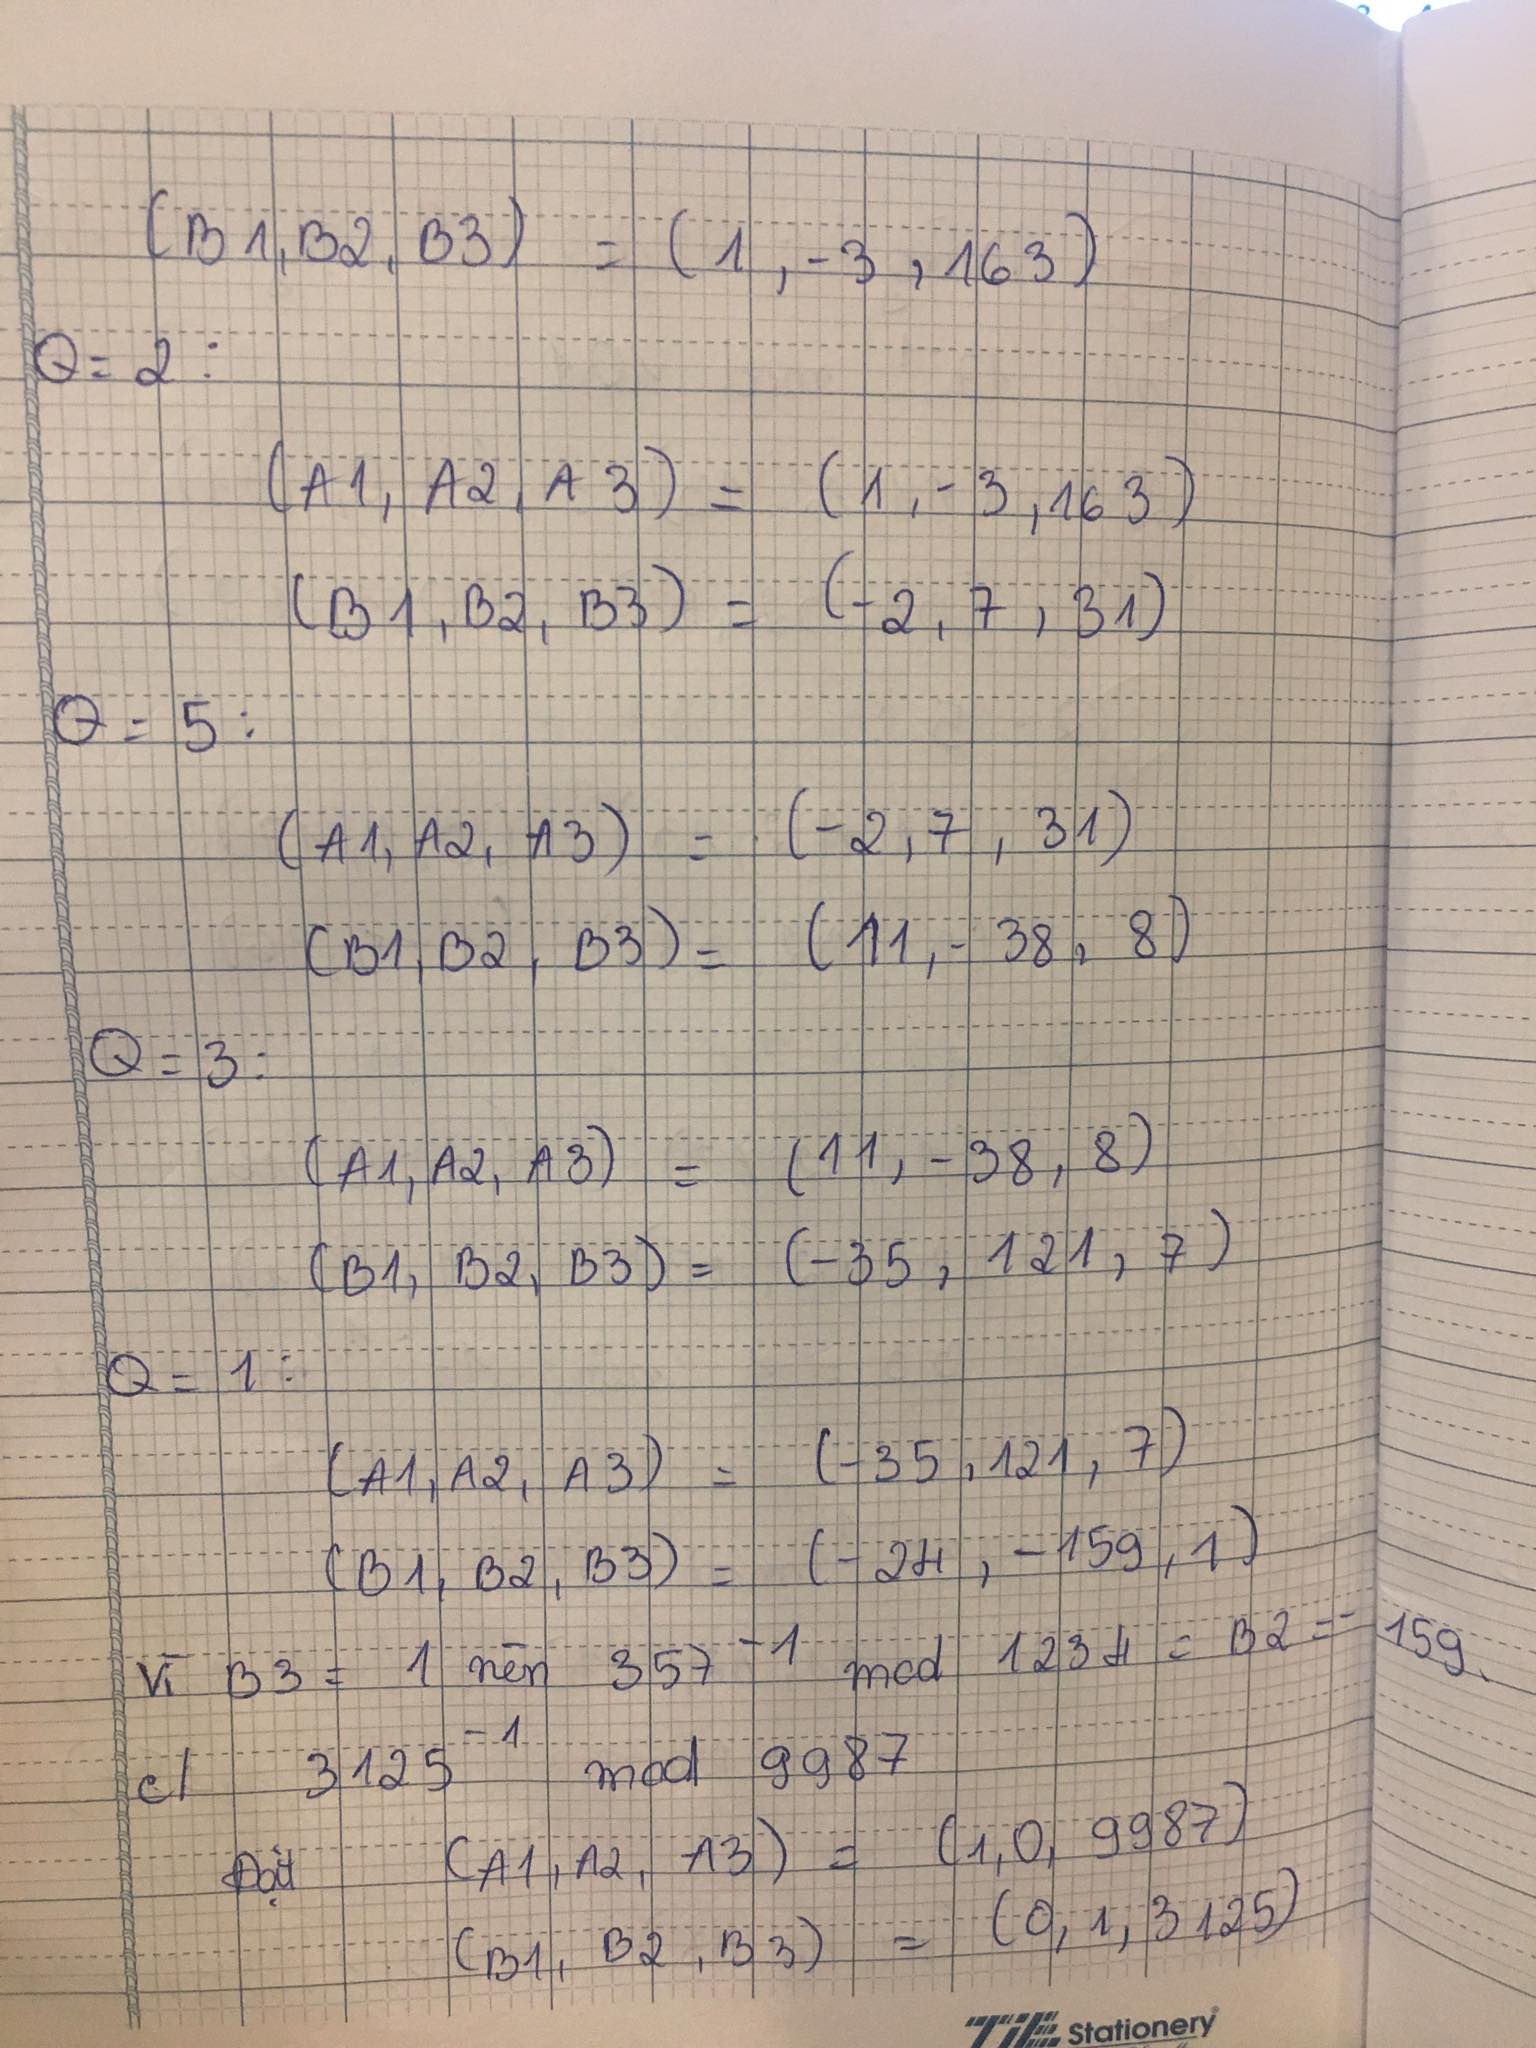 (B1, B2, B3) = (1, -3, 163)
Q = 2 :
(A1, A2, A3) = (1, -3, 163)
(B1, B2, B3) = (-2, 7, 31)
Q = 5 :
(A1, A2, A3) = (-2, 7, 31)
(B1, B2, B3) = (11, -38, 8)
Q = 3 :
(A1, A2, A3) = (11, -38, 8)
(B1, B2, B3) = (-35, 121, 7)
Q = 1 :
(A1, A2, A3) = (-35, 121, 7)
(B1, B2, B3) = (-24, -159, 1)
Vì B3 = 1 nên 357⁻¹ mod 1234 = B2 = -159.
c/ 3125⁻¹ mod 9987
Đặt (A1, A2, A3) = (1, 0, 9987)
(B1, B2, B3) = (0, 1, 3125)
TiE Stationery